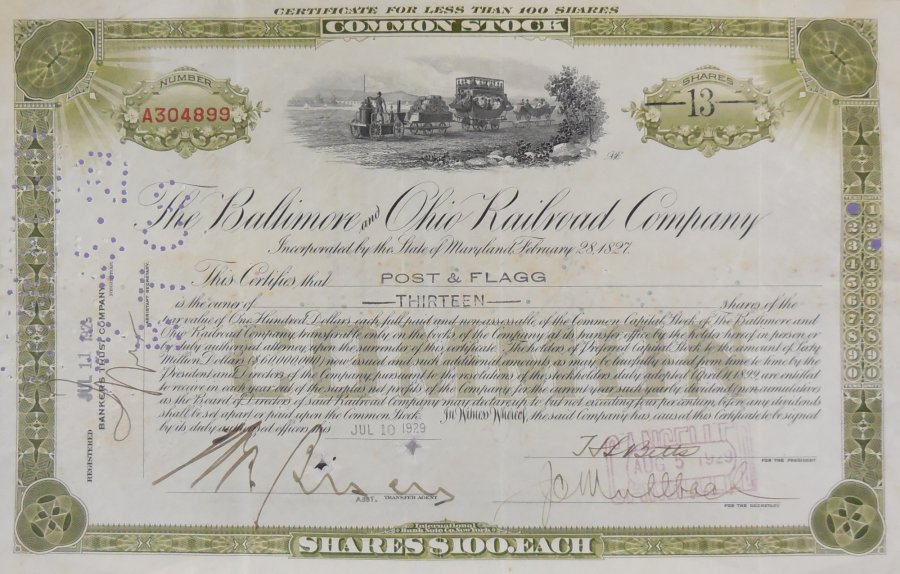 CERTIFICATE FOR LESS THAN 100 SHARES
COMMON STOCK
NUMBER
A304899
SHARES
13
The Baltimore and Ohio Railroad Company
Incorporated by the State of Maryland, February 28, 1827.
This Certifies that POST & FLAGG
is the owner of THIRTEEN shares of the
par value of One Hundred Dollars each full paid and non-assessable of the Common Capital Stock of The Baltimore and
Ohio Railroad Company, transferable only on the books of the Company at its transfer office by the holder hereof in person or
by duly authorized attorney upon the surrender of this certificate. The holders of Preferred Capital Stock to the amount of Sixty
Million Dollars ($60,000,000) now issued and such additional amounts as may be lawfully issued from time to time by the
President and Directors of the Company pursuant to the resolutions of the stockholders duly adopted April 1899 are entitled
to receive in each year out of the surplus net profits of the Company for the current year such yearly dividend (non cumulative)
as the Board of Directors of said Railroad Company may declare up to but not exceeding four per centum before any dividends
shall be set apart or paid upon the Common Stock. In Witness Whereof, the said Company has caused this Certificate to be signed
by its duly authorized officers this JUL 10 1929
CANCELLED
AUG 5 1929
FOR THE PRESIDENT
ASST. TRANSFER AGENT
FOR THE SECRETARY
REGISTERED
JUL 11 1929
BANKERS TRUST COMPANY
REGISTRAR
ASSISTANT SECRETARY
International
Bank Note Co. New York
SHARES $100. EACH